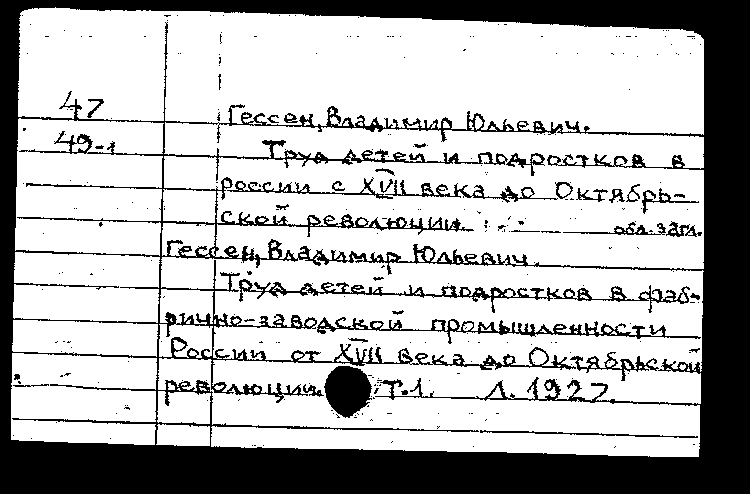 47
Гессен, Владимир Юльевич.
49-1
Труд детей и подростков в
россии с XVII века до Октябрь-
ской революции. обл. загл.
Гессен, Владимир Юльевич.
Труд детей и подростков в фаб-
рично-заводской промышленности
России от XVII века до Октябрьской
революции. Т.1. Л. 1927.